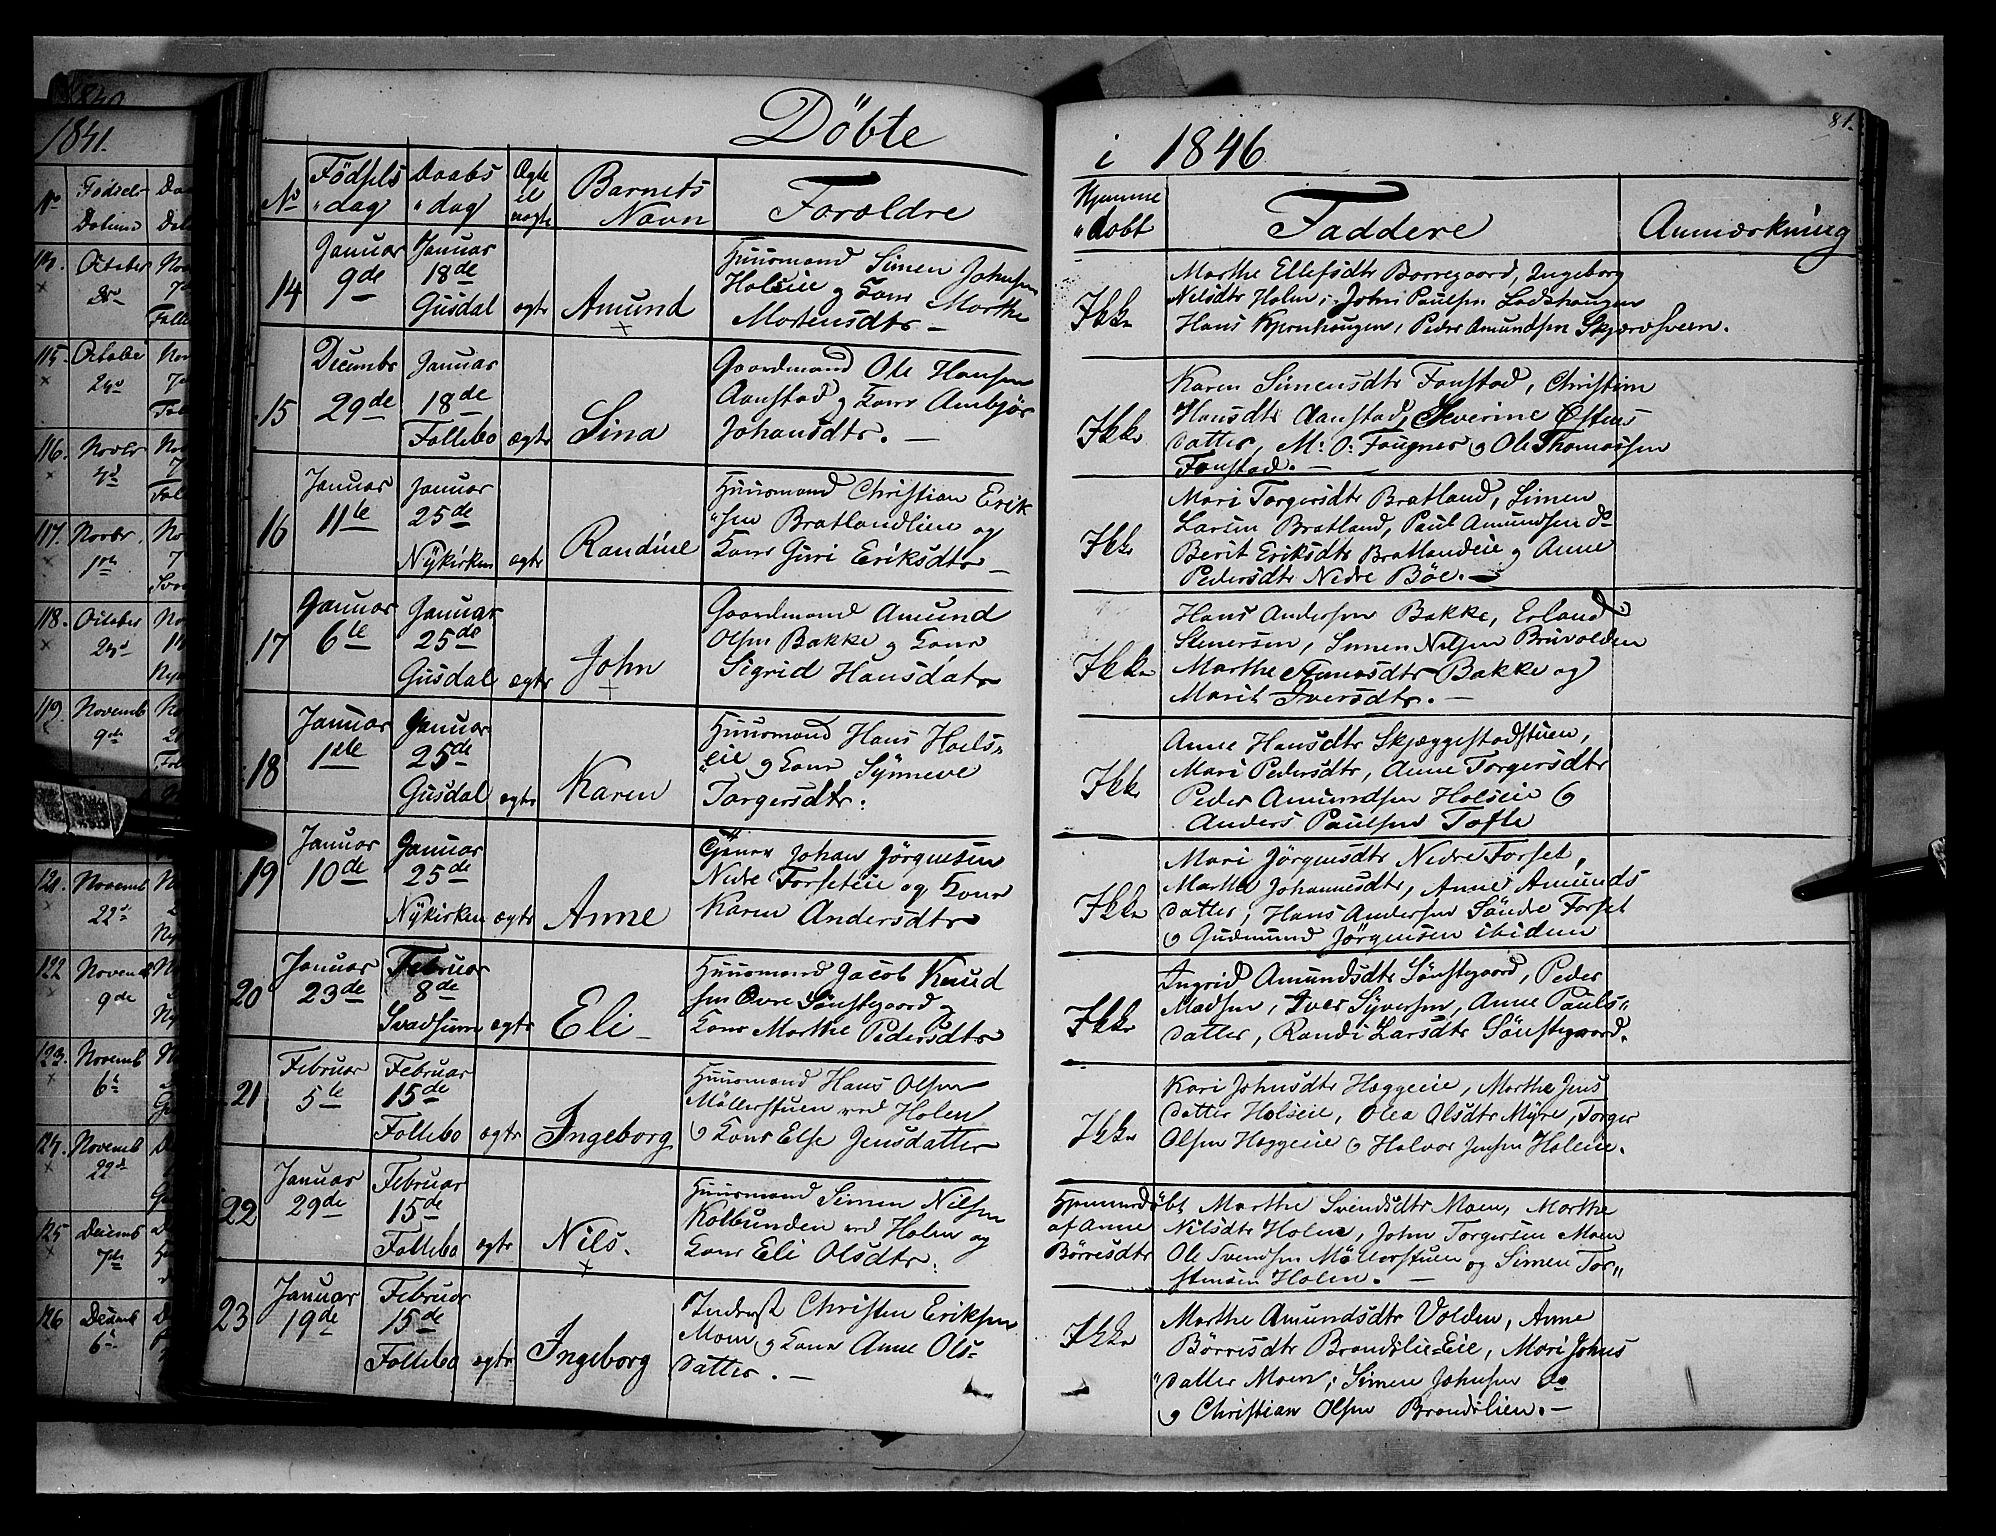 1840
1841.
Döbte
i 1846
81.
No
Födsels dag
Daabs dag
Ægte el uægte
Barnets Navn
Forældre
Hjemme döbt
Faddere
Anmærkning
14
Januar 9de
Januar 18de Gusdal
egte
Amund
Huusmand Simen Johnsen
Holseie og Kone Marthe
Mortensdtr
Ikke
Marthe Ellefsdtr Borregaard, Ingeborg
Nilsdtr Holen, John Paulsen
Hans Kjernhaugen, Peder Amundsen
15
Decembr 29de
Januar 18de Follebo
ægte
Lina
Gaardmand Ole Hansen
Aanstad og Kone Ambjør
Johansdtr.
Ikke
Karen Simensdtr Fonstad, Christine
Hansdtr Aanstad, Severine Østens
datter, M: O: Fougner og Ole Thomassen
Fonstad.
16
Januar 11te
Januar 25de Nykirken
egte
Randine
Huusmand Christian Erik
sen Bratlandlien og
Kone Guri Eriksdtr
Ikke
Mari Torgersdtr Bratland, Simen
Larsen Bratland, Paul Amundsen do
Berit Eriksdtr Bratlandeie og Anne
Pedersdtr Nedre Böe.
17
Januar 6te
Januar 25de Gusdal
ægte
John
Gaardmand Amund
Olsen Bakke og Kone
Sigrid Hansdatr
Ikke
Hans Andersen Bakke, Erland
Stenersen, Simen Nilsen Bruvolden
Marthe Bakke og
Marit Iversdtr.
18
Januar 1ste
Januar 25de Gusdal
egte
Karen
Huusmand Hans Hols=
eie og Kone Synneve
Torgersdtr.
Ikke
Anne Hansdtr Skjæggestadstuen,
Mari Pedersdtr, Anne Torgersdtr
Peder Amundsen Holseie og
Anders Paulsen Tofte
19
Januar 10de
Januar 25de Nykirken
ægte
Anne
Tjener Johan Jörgensen
Nedre Forseteie og Kone
Karen Andersdtr
Ikke
Mari Jörgensdtr Nedre Forset,
Marthe Johannesdtr, Anne Amunds
datter, Hans Andersen Söndre Forset
og Gudmund Jörgensen ibidem
20
Januar 23de
Februar 8de Svadsum
egte
Eli
Huusmand Jacob Knud
sen Övre Sönstegaard og
Kone Marthe Pedersdtr
Ikke
Ingrid Amundsdtr Sönstegaard, Peder
Madsen, Iver Syversen, Anne Pauls"
datter, Randi Larsdtr Sönstegaard.
21
Februar 5te
Februar 15de Follebo
ægte
Ingeborg
Huusmand Hans Olsen
Möllerstuen ved Holen
og Kone Else Jensdatter
Ikke
Kari Johnsdtr Heggeeie, Marthe Jens
datter Holseie, Olea Olsdtr Myre, Torger
Olsen Heggeeie og Halvor Jensen Holeeie.
22
Januar 29de
Februar 15de Follebo
egte
Nils.
Huusmand Simen Nilsen
Kolbunden ved Holen og
Kone Eli Olsdtr.
Hjemmedöbt
af Anne
Börresdtr
Marthe Svendsdtr Moen, Marthe
Nilsdtr Holen, John Torgersen Moen
Ole Svendsen Möllerstuen og Simen Tor"
stensen Holen.
23
Januar 19de
Februar 15de Follebo
egte
Ingeborg
Inderst Christen Eriksen
Moen og Kone Anne Ols=
datter.
Ikke
Marthe Amundsdtr Volden, Anne
Börresdtr Brandslie=Eie, Mari Johns
datter Moen, Simen Johnsen do
og Christian Olsen Brandslien.
No
Födsels-Datum
115. Octobe
116. Novbr
117. Novbr. 1ste
118. October
119. Novemb 9de
121. Novemb 22de
122 Novemb 9de
123. Novemb 6te
Novemb 22de
125 Decemb 7de
126 Decemb 6te